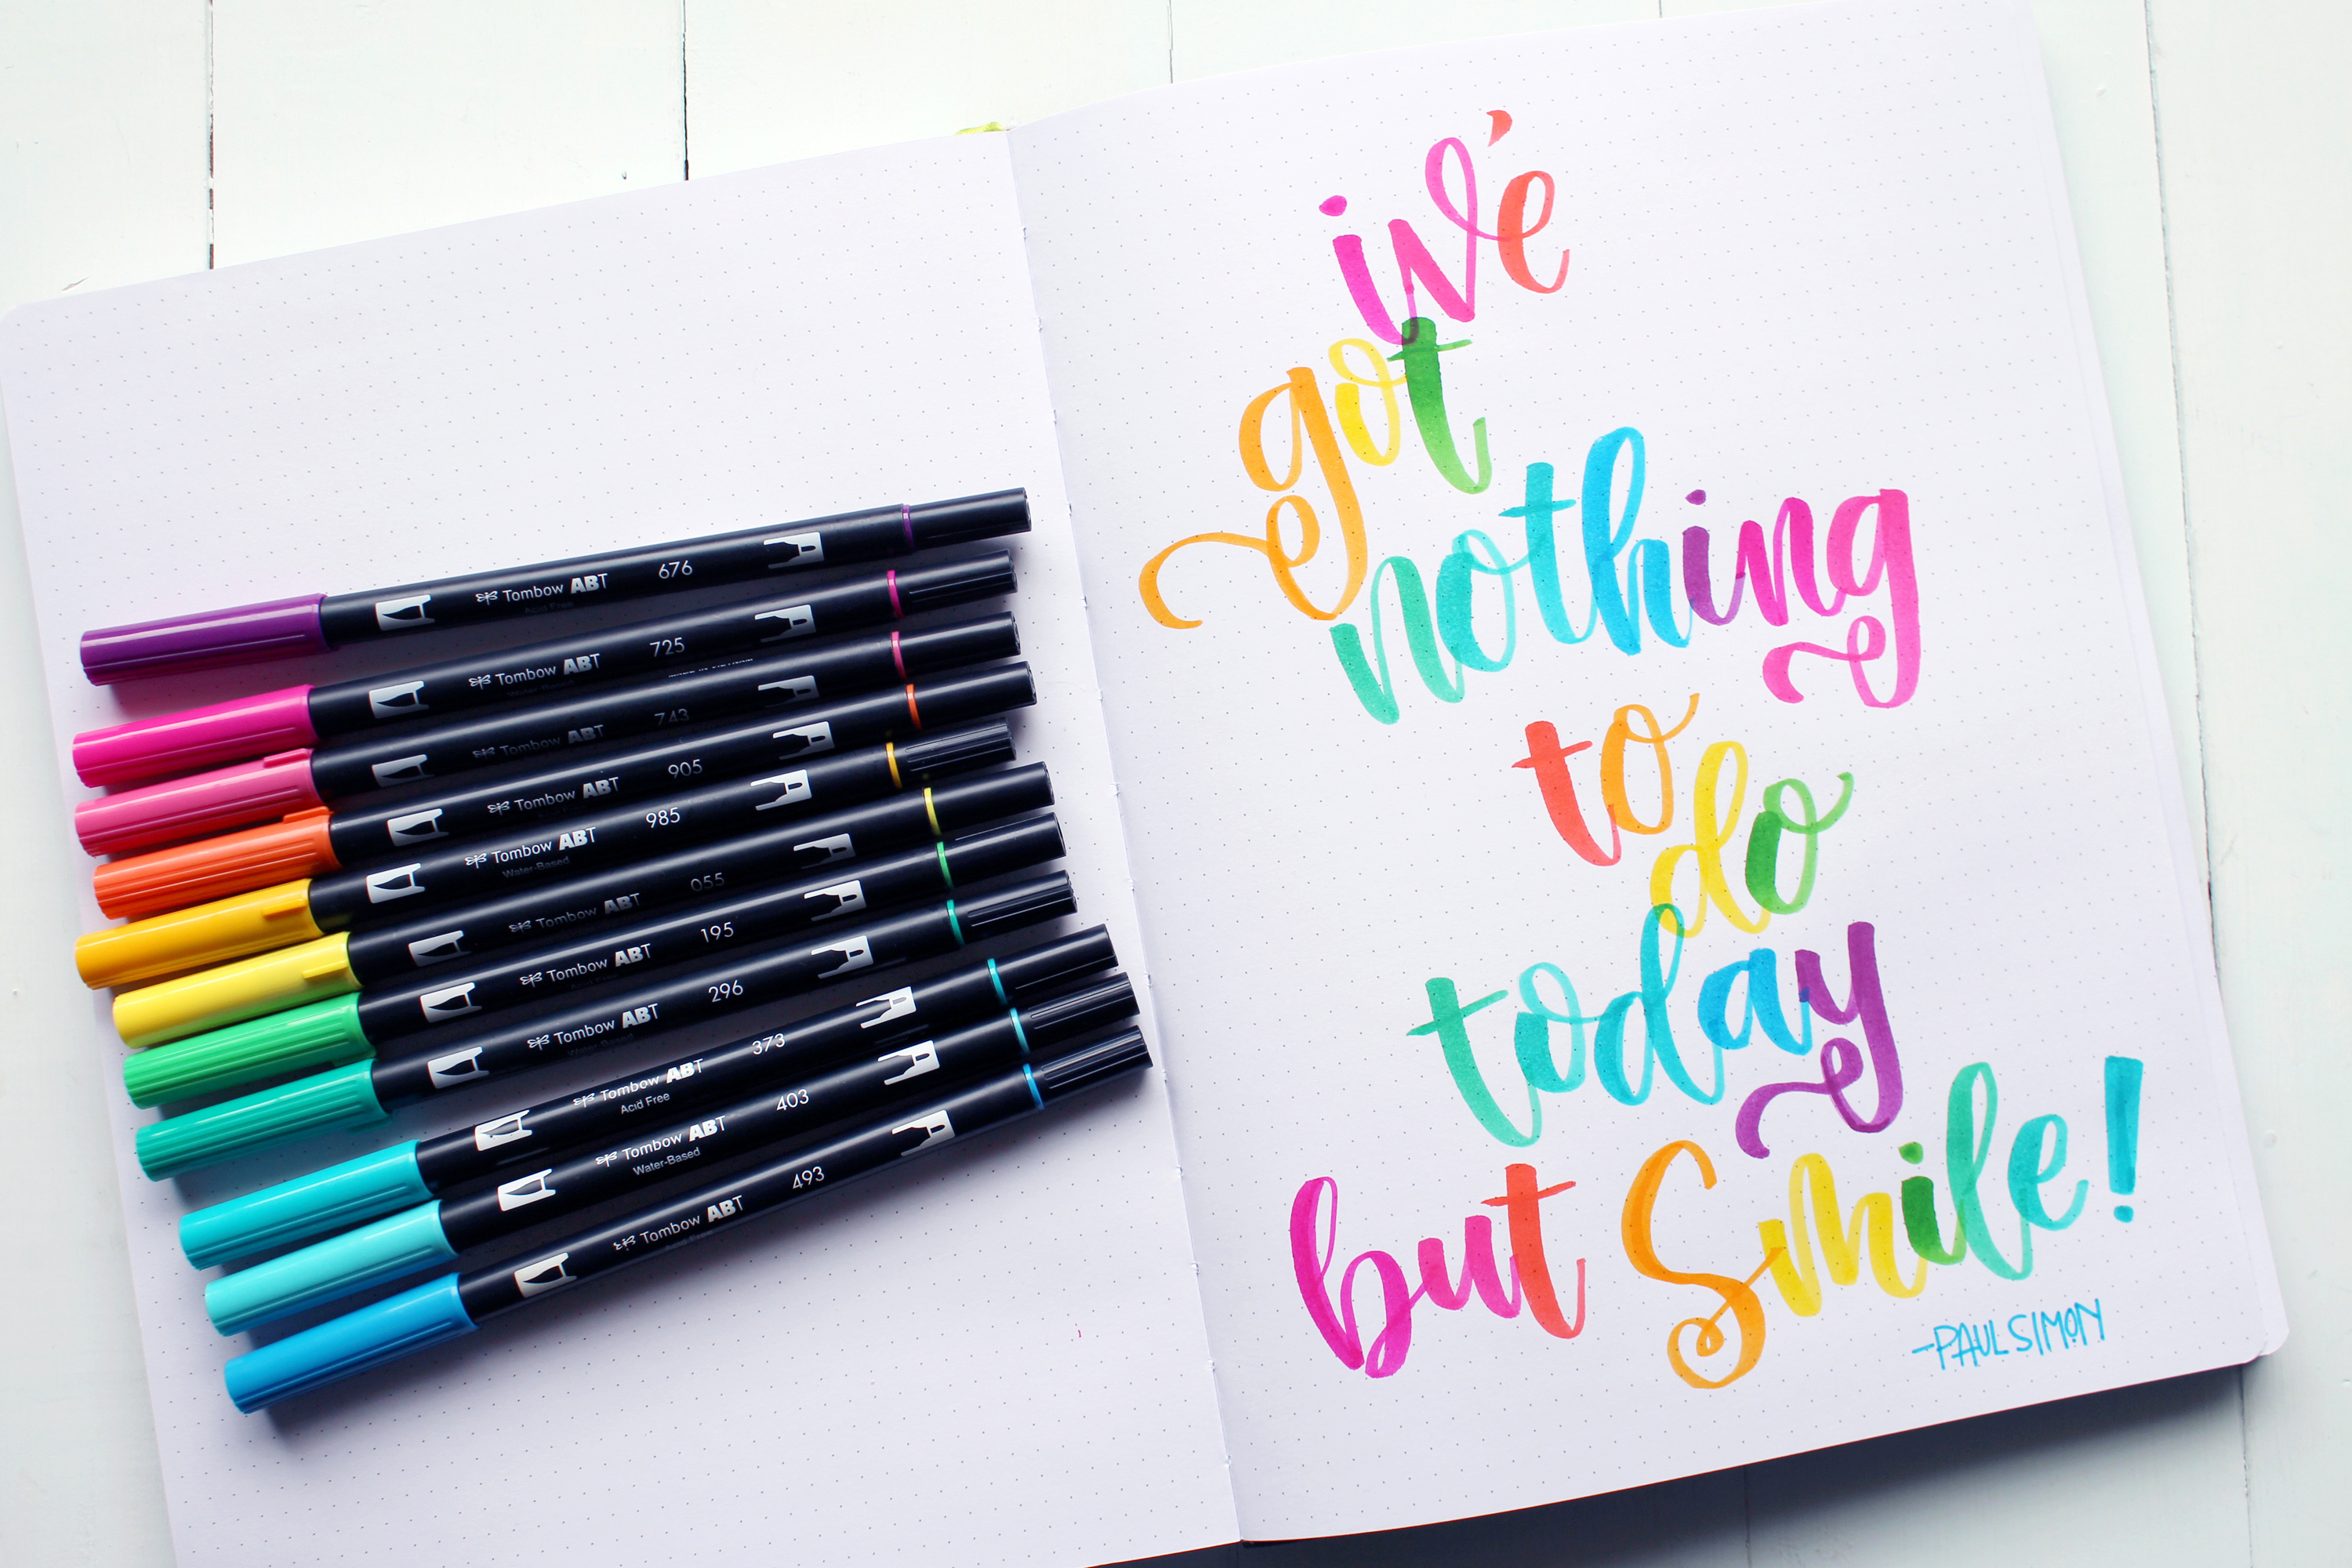 Tombow ABT 676
Acid Free
Tombow ABT 725
Water-Based
Tombow ABT 743
Tombow ABT 905
Tombow ABT 985
Water-Based
Tombow ABT 055
Tombow ABT 195
Tombow ABT 296
Water-Based
Tombow ABT 373
Acid Free
Tombow ABT 403
Water-Based
Tombow ABT 493
Acid Free
i've
got
nothing
to
do
today
but Smile!
-PAUL SIMON